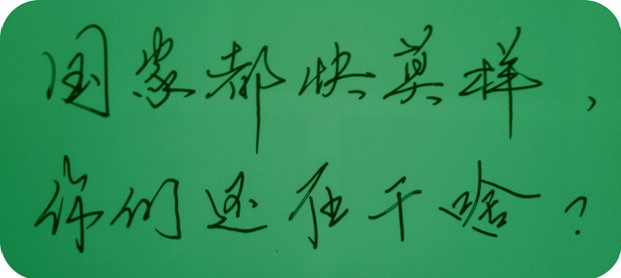 国家都快莫样，
你们还在干啥？